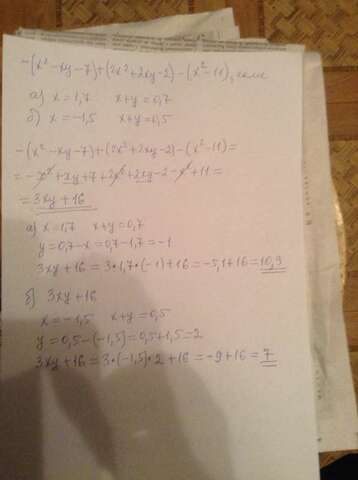 -(x²-xy-7)+(2x²+2xy-2)-(x²-11), если
а) x=1,7 x+y=0,7
б) x=-1,5 x+y=0,5
-(x²-xy-7)+(2x²+2xy-2)-(x²-11)=
=-x²+xy+7+2x²+2xy-2-x²+11=
=3xy+16
а) x=1,7 x+y=0,7
y=0,7-x=0,7-1,7=-1
3xy+16=3*1,7*(-1)+16=-5,1+16=10,9
б) 3xy+16
x=-1,5 x+y=0,5
y=0,5-(-1,5)=0,5+1,5=2
3xy+16=3*(-1,5)*2+16=-9+16=7